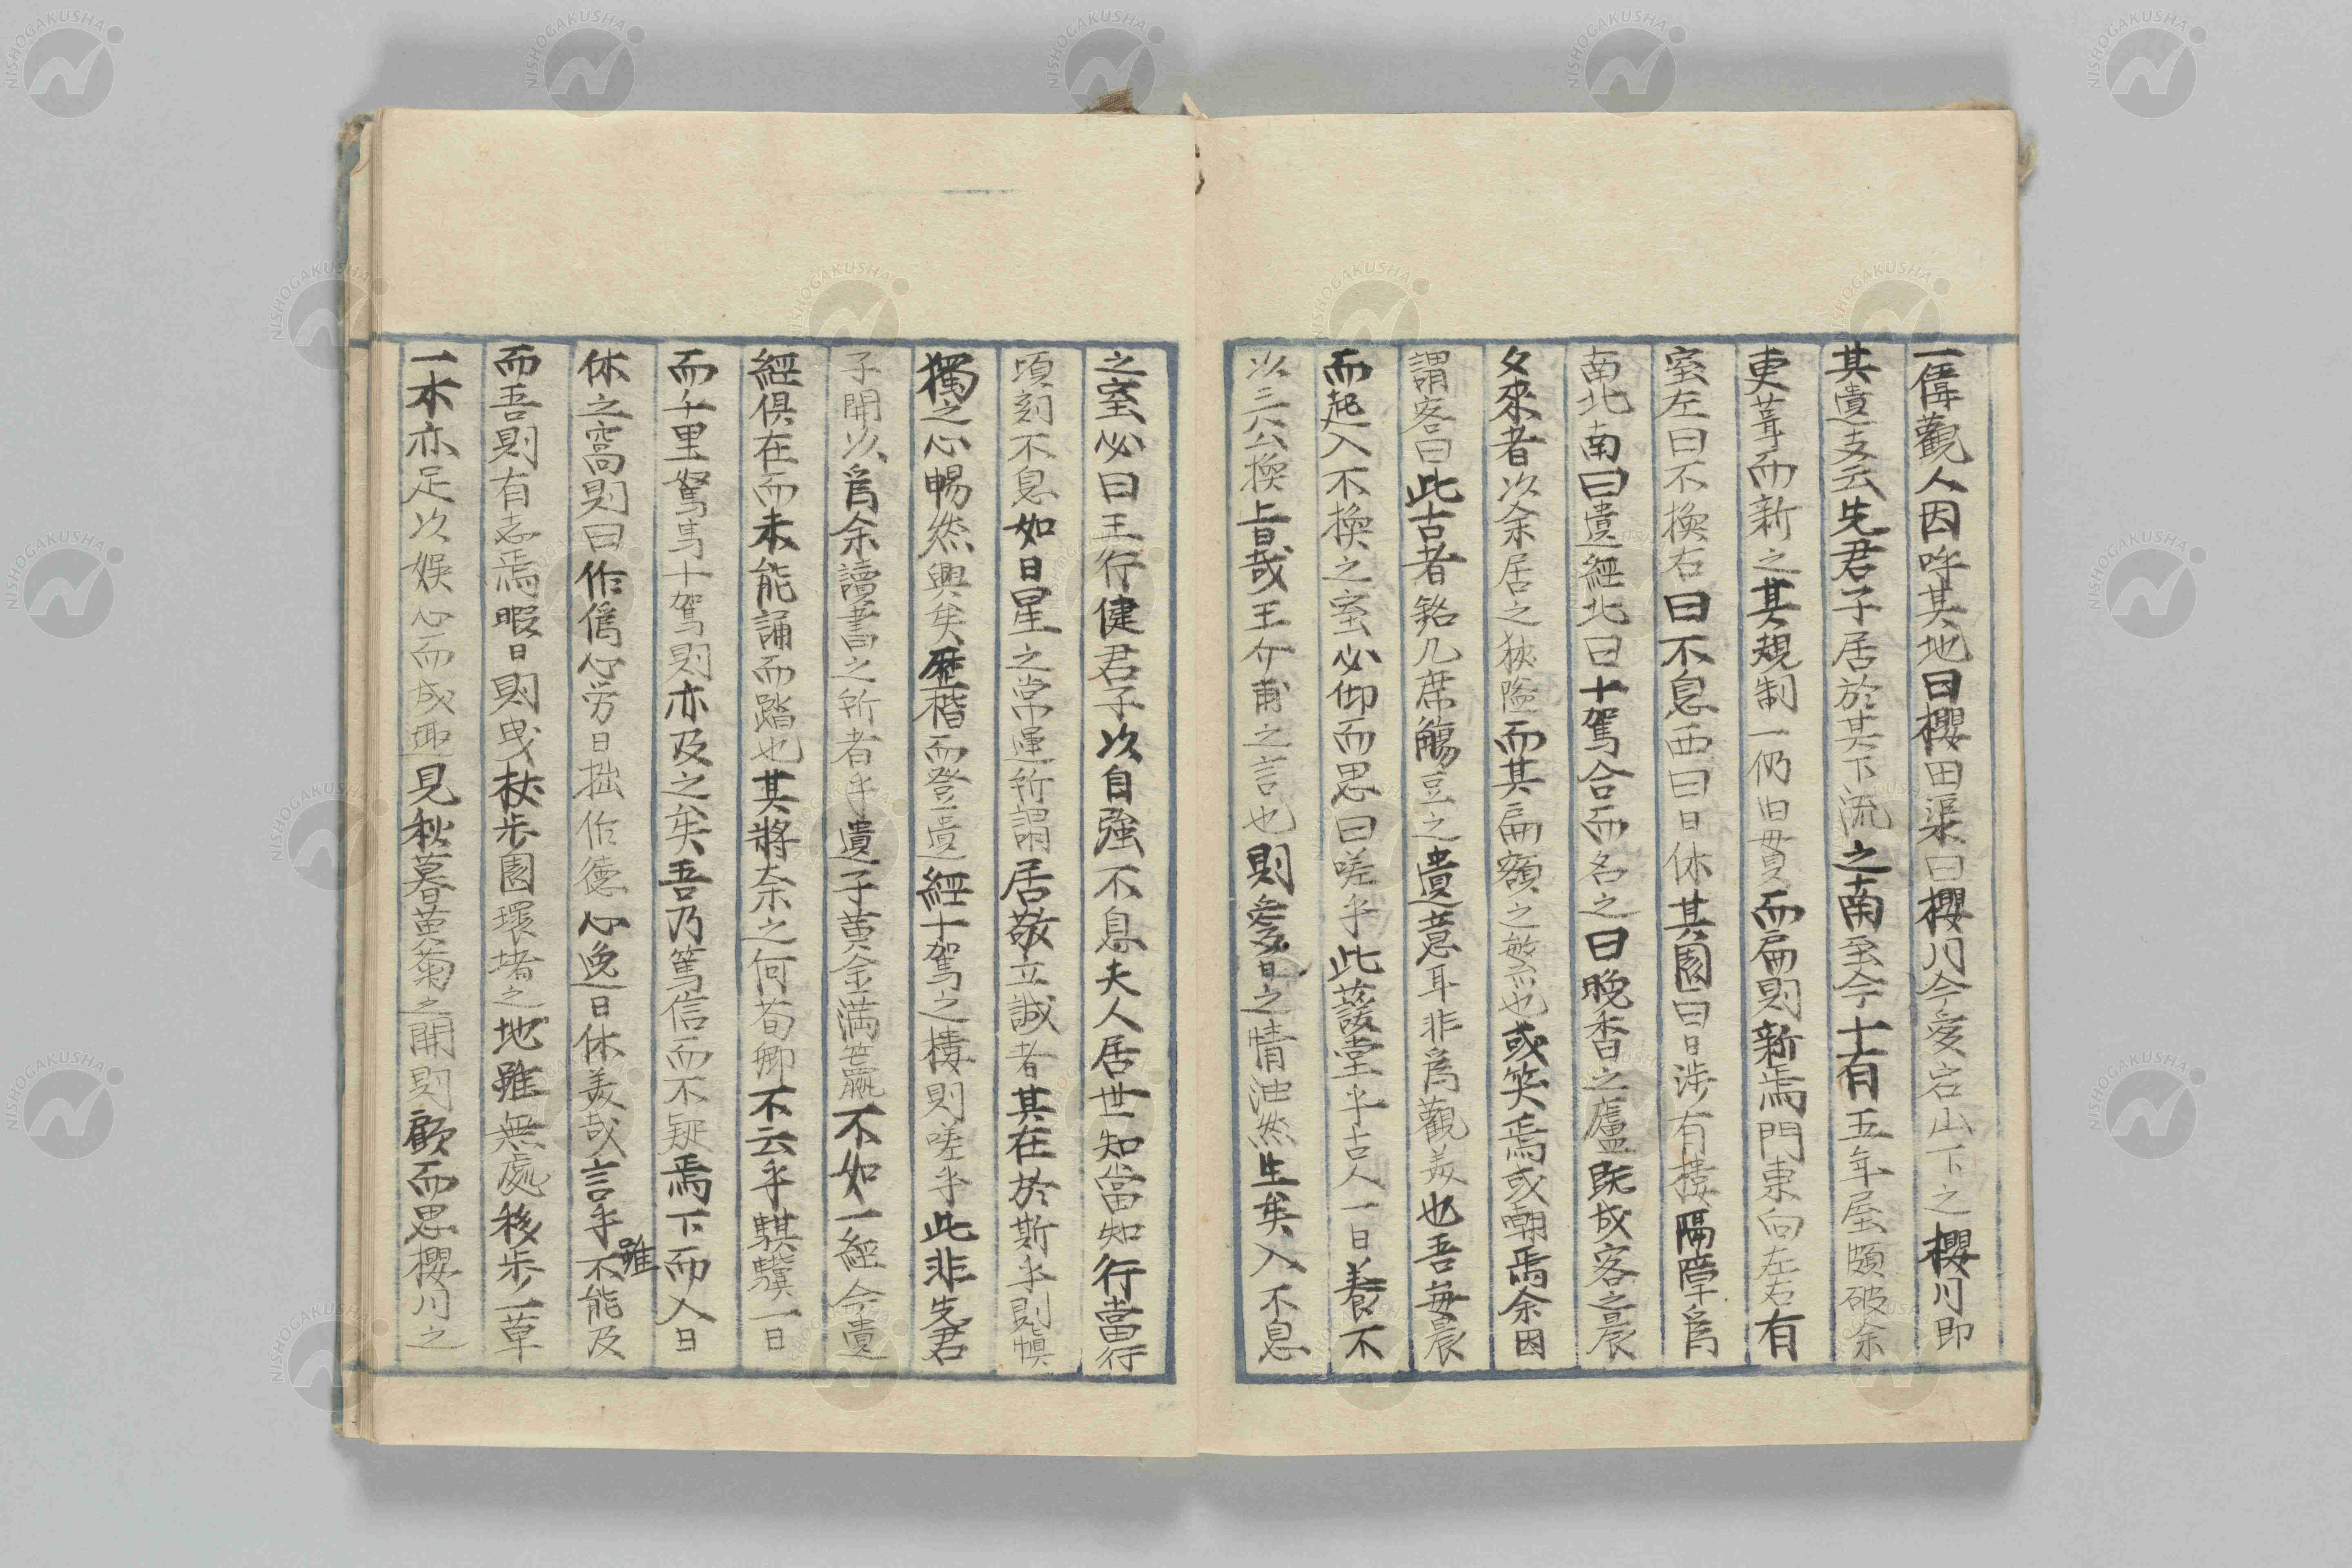 一偉觀人因呼其地曰櫻田渠曰櫻川今爰宕山下之櫻川即
其遺支云先君子居於其下流之南至今十有五年屋頗破余
更葺而新之其規制一仍旧貫而扁則新焉門東向左右有
室左曰不換右曰不息西曰日休其園曰日涉有樓隔障爲
南北南曰遺經北曰十駕合而名之曰晚香之廬既成客之晨
夕來者以余居之狹隘而其扁額之繁也或笑焉或嘲焉余因
謂客曰此古者銘几席觴豆之遺意耳非爲觀美也吾每晨
而起入不換之室必仰而思曰嗟乎此諼堂乎古人一日養不
以三公換旨哉王介甫之言也則愛日之情油然生矣入不息
之室必曰王行健君子以自強不息夫人居世知當知行當行
頃刻不息如日星之常運所謂居敬立誠者其在於斯乎則愼
獨之心暢然興矣歷楷而登遺經十駕之樓則嗟乎此非先君
子開以爲余讀書之所者乎遺子黃金滿籯不如一經今遺
經俱在而未能誦而踏也其將奈之何荀卿不云乎騏驥一日
而千里駑馬十駕則亦及之矣吾乃篤信而不疑焉下而入日
休之窩則曰作僞心労日拙作德心逸日休美哉言乎雖不能及
而吾則有志焉暇日則曳杖步園環堵之地雖無處移步一草
一木亦足以娛心而成趣見秋暮黃菊之開則顧而思櫻川之
NISHOGAKUSHA